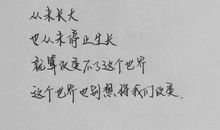 从未长大
也从未停止生长
就算改变不了这个世界
这个世界也别想将我们改变.